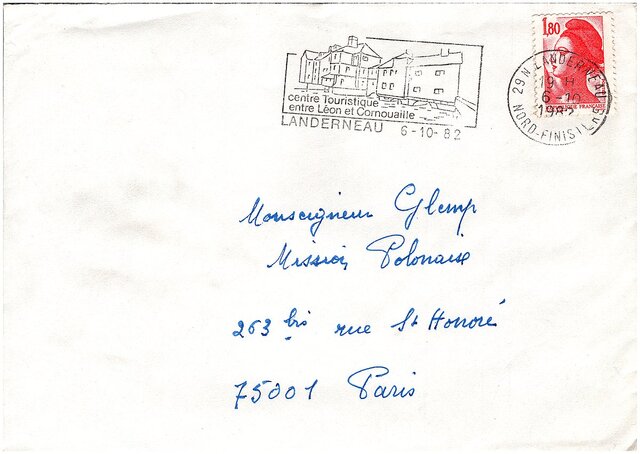 1,80
RÉPUBLIQUE FRANÇAISE
29N LANDERNEAU
19 H
6-10
1982
NORD-FINISTÈRE
centre Touristique
entre Léon et Cornouaille
LANDERNEAU 6-10-82
Monseigneur Glemp
Mission Polonaise
263 bis rue St Honoré
75001 Paris